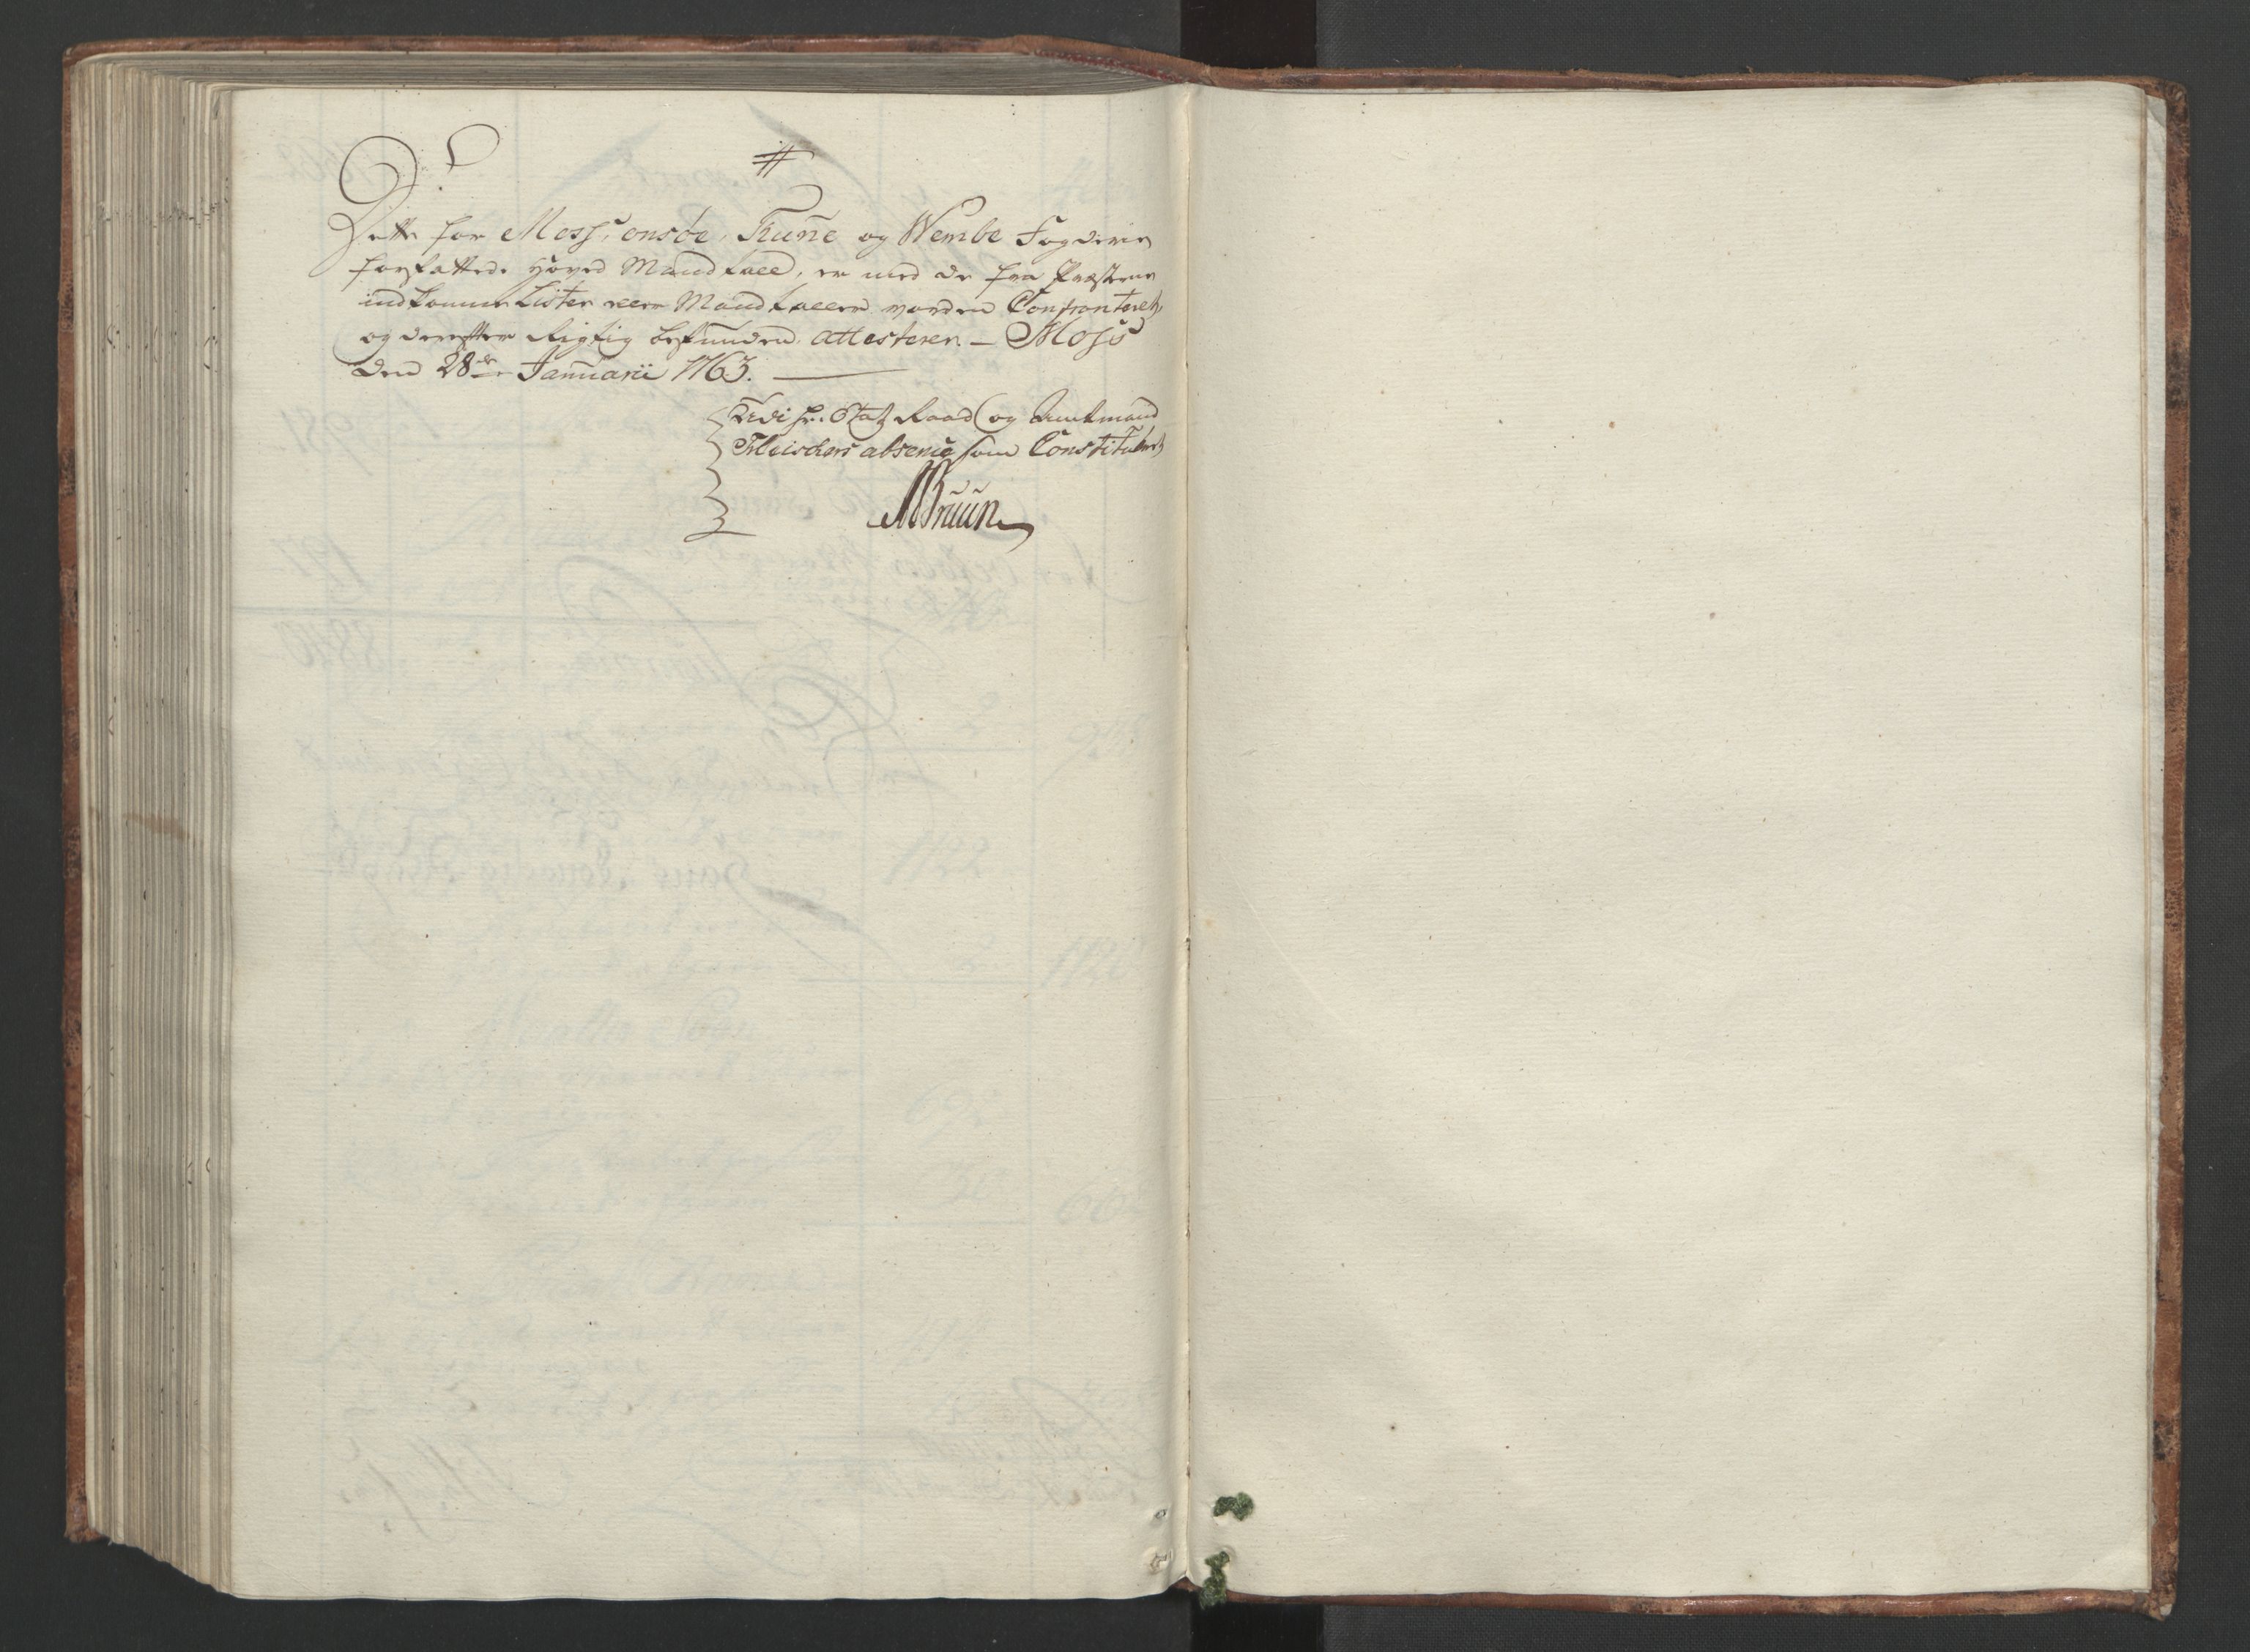 #
Dette for Moss, onsöe, Tune og Wembe Fogderie
forfattede Hoved Mandtall, er med de fra Præsterne
indkomne Lister eller Mandtaller vorden Confronteret,
og derefter Rigtig befunden, attesterer. — Moss
den 28de Januarii 1763.
Udi hr. Etatz Raad og Amtmand
Fleischers absence som Constitueret
Bruun